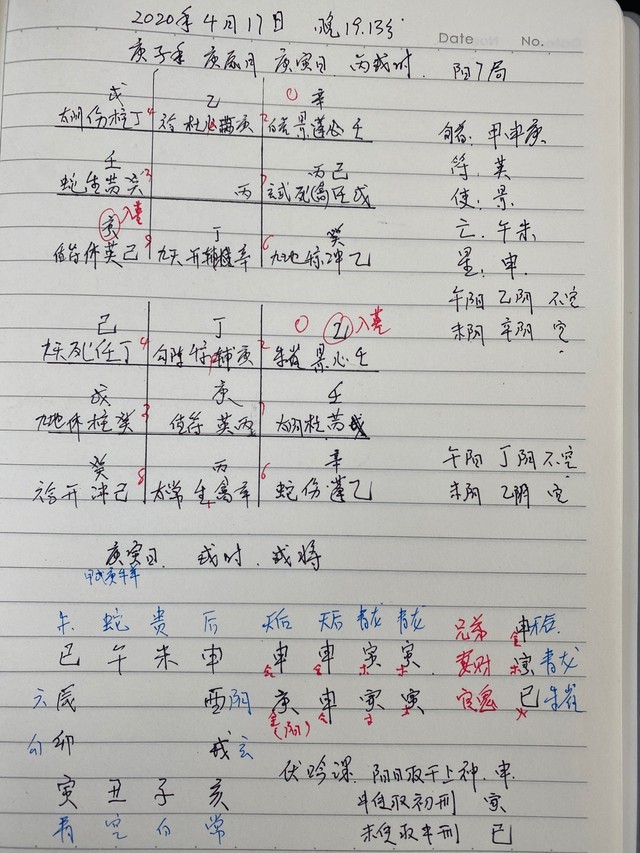 2020年4月17日 晚19.13分
Date No.
庚子年 庚辰月 庚寅日 丙戌时 阳7局
戊 乙 辛
太阴伤柱丁 庚 白虎景蓬心壬 旬首:甲申庚
壬 丙己 符:英
蛇生芮癸 丙 玄武死(禽)任戊 使:景
庚入墓 丁 癸 亡:午未
值符休英己 九天开辅辛 九地惊冲乙 星:申
午阳 乙阴 不空
己 丁 乙入墓 未阴 辛阴 空
九天死任丁 勾陈惊辅庚 朱雀景心壬
戊 庚 壬
九地休柱癸 值符英丙 太阴杜芮戊
癸 丙 辛 午阳 丁阴 不空
六合开冲己 太常生禽辛 蛇伤蓬乙 未阴 乙阴 空
庚寅日 戌时 戌将
朱 蛇 贵 后 天后 天后 青龙 青龙 兄弟 申
巳 午 未 申 申 申 寅 寅 妻财 寅青龙
六辰 酉阴 庚 申 寅 寅 官鬼 巳朱雀
勾卯 戌玄
伏吟课 阳日取干上神 申
寅 丑 子 亥 中传取初刑 寅
青 空 白 常 末传取中刑 巳